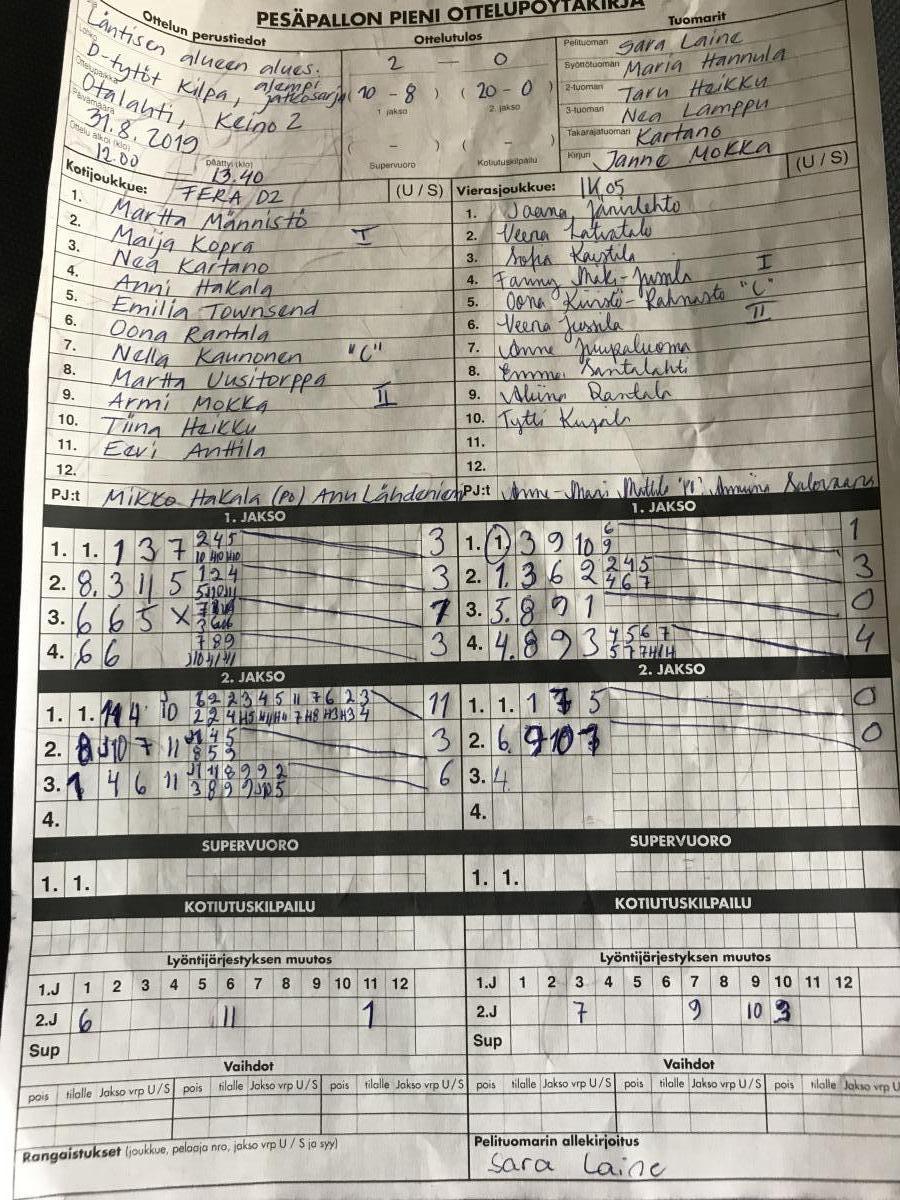 PESÄPALLON PIENI OTTELUPÖYTÄKIRJA
Ottelun perustiedot
Läntisen alueen alues.
D-tytöt Kilpa, alempi jatkosarja
Ottelupaikka
Otalahti, Keino 2
Päivämäärä
31.8.2019
Ottelu alkoi (klo)
12.00
päättyi (klo)
13.40
Ottelutulos
2 — 0
(10 - 8) (20 - 0)
1. jakso 2. jakso
( - ) ( - )
Supervuoro Kotiutuskilpailu
Tuomarit
Pelituomari Sara Laine
Syöttötuomari Maria Hannula
2-tuomari Taru Heikku
3-tuomari Nea Lamppu
Takarajatuomari Kartano
Kirjuri Janne Mokka
Kotijoukkue: FERA D2 (U / S)
1. Martta Männistö
2. Maija Kopra I
3. Nea Kartano
4. Anni Hakala
5. Emilia Townsend
6. Oona Rantala
7. Nella Kaunonen "C"
8. Martta Uusitorppa
9. Armi Mokka II
10. Tiina Heikku
11. Eevi Anttila
12.
PJ:t Mikko Hakala (PO) Anu
Vierasjoukkue: IK05 (U / S)
1. Jaana Järvilehto
2. Veera Latvatalo
3. Sofia
4. Fanny Mäki-Jussila I
5. Oona "C"
6. Veera Jussila II
7. Anne
8. Emma Santalahti
9. Rantala
10. Tytti Kujala
11.
12.
PJ:t Anne-Mari Mattila "PJ",
1. JAKSO
1. 1. 1 3 7 2 4 5 3
2. 8. 3 11 5 1 2 4 3
3. 6 6 5 X 1
4. 6 6 7 8 9 3
1. JAKSO
1. 1. 3 9 10 6 9 1
2. 1. 3 6 2 2 4 5 3
4 6 7
3. 5. 8 9 1 0
4. 4. 8 9 3 4 5 6 7 4
2. JAKSO
1. 1. 11 4 10 11
2. 8 10 7 11 3
3. 1 4 6 11 6
4.
2. JAKSO
1. 1. 1 7 5 0
2. 6. 9 10 7 0
3. 4.
4.
SUPERVUORO
1. 1.
SUPERVUORO
1. 1.
KOTIUTUSKILPAILU
KOTIUTUSKILPAILU
Lyöntijärjestyksen muutos
1.J 1 2 3 4 5 6 7 8 9 10 11 12
2.J 6 11 1
Sup
Lyöntijärjestyksen muutos
1.J 1 2 3 4 5 6 7 8 9 10 11 12
2.J 7 9 10 3
Sup
Vaihdot
pois tilalle Jakso vrp U / S pois tilalle Jakso vrp U / S pois tilalle Jakso vrp U / S
Vaihdot
pois tilalle Jakso vrp U / S pois tilalle Jakso vrp U / S pois tilalle Jakso vrp U
Rangaistukset (joukkue, pelaaja nro, jakso vrp U / S ja syy)
Pelituomarin allekirjoitus
Sara Laine